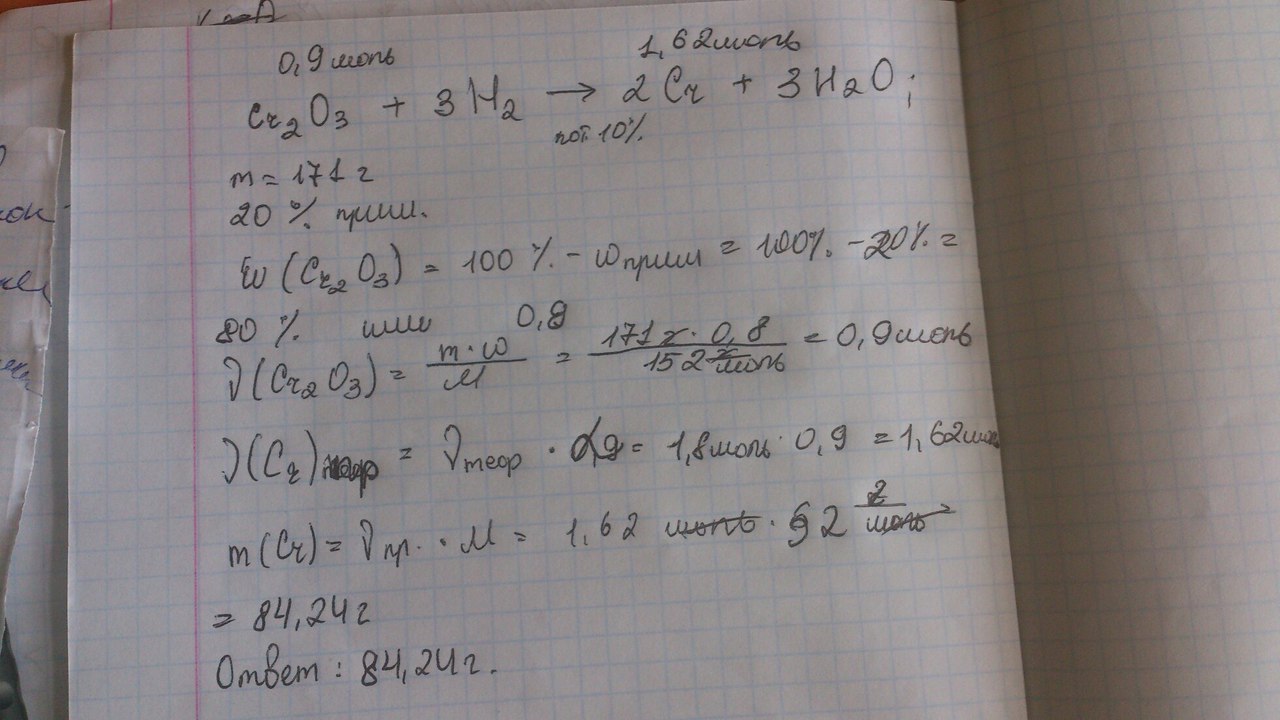 0,9 моль 1,62 моль
Cr₂O₃ + 3H₂ → 2Cr + 3H₂O;
пот 10%
m = 171 г
20 % прим.
W (Cr₂O₃) = 100 % - wприм = 100% - 20% =
80 % или 0,8
ν(Cr₂O₃) = m·w / M = 171 г · 0,8 / 152 г/моль = 0,9 моль
ν(Cr) = νтеор · 0,9 = 1,8 моль · 0,9 = 1,62 моль
m(Cr) = νпр. · M = 1,62 моль · 52 г/моль
= 84,24 г
Ответ: 84,24 г.